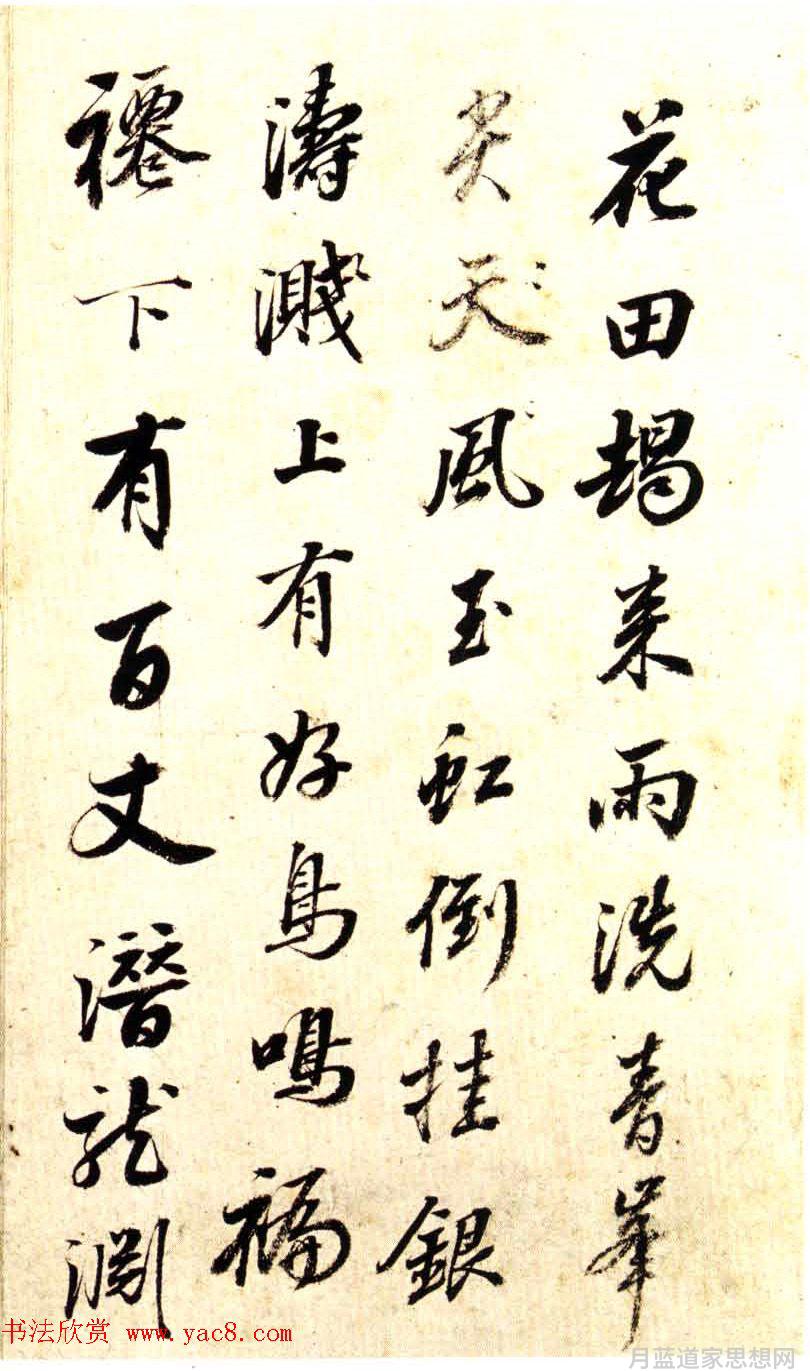 花田朅来雨洗青峯
尖天風玉虹倒挂銀
濤濺上有好鳥鳴褊
褼下有百丈潛龍淵
书法欣赏 www.yac8.com
月蓝道家思想网